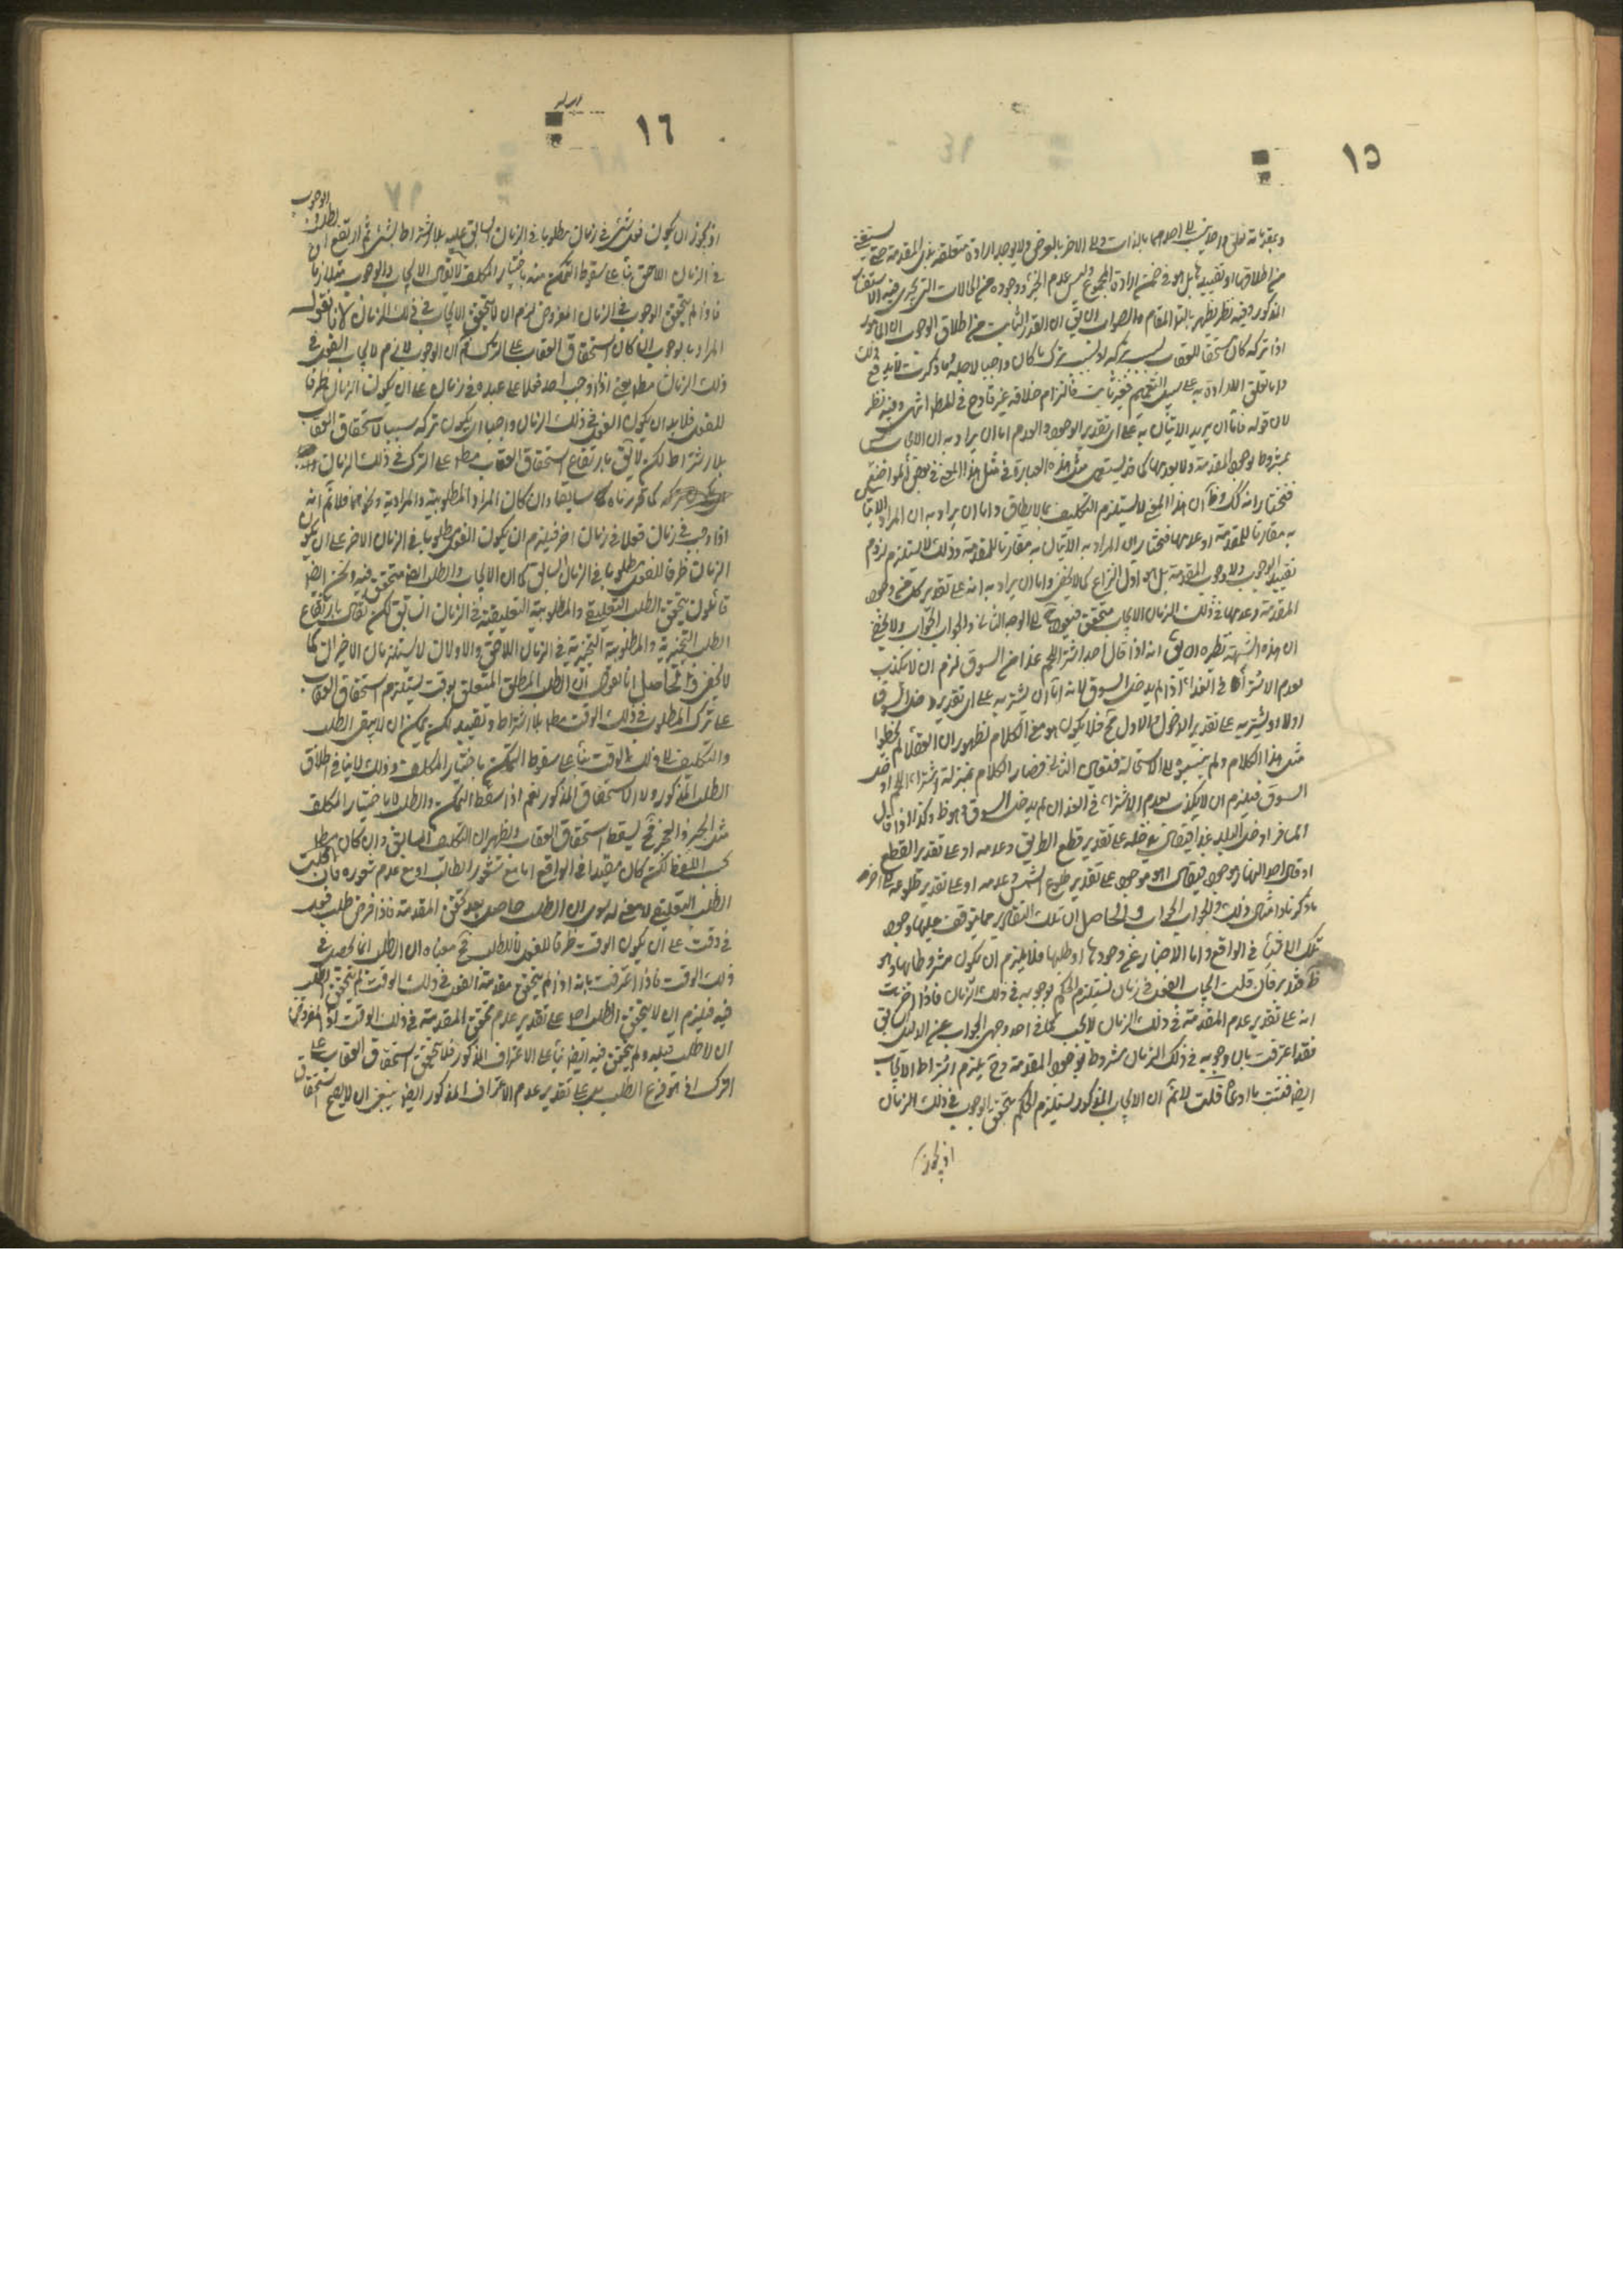 ١٥
من اطلاقها او تقييدها بل هو في ضمن ارادة المجموع وليس عدم الجزء ووجوده من الحالات التي يجرى فيه
المذكور وفيه نظر يظهر بالتأمل المقام والصواب ان يق ان القدر الثابت من اطلاق الوجوب ان المأمور
اذا تركه كان مستحقا للعقاب بسبب تركه او بسبب ترك ما كان واجبا لاجله
واما تعلق الارادة به على سبيل التعميم فغير ثابت فالتزام خلافه غير قادح في المطلوب انتهى وفيه نظر
لان قوله فاما ان يريد الاتيان به على اي تقدير الوجود والعدم اما ان يراد به ان الاتيان ليس
بمشروط بوجود المقدمة ولا بعدمها كما قد يستعمل مثل هذه العبارة في مثل هذا المعنى في بعض المواضع
فنختار انه كك وظ ان هذا المعنى لا يستلزم التكليف بما لا يطاق واما ان يراد به ان المراد الاتيان
به مقارنا للمقدمة او عدمها فنختار ان المراد به الاتيان به مقارنا للمقدمة وذلك لا يستلزم لزوم
تقييد الوجوب ولا وجوب المقدمة بل هو اول النزاع كما لا يخفى واما ان يراد به انه على تقدير كل من وجود
المقدمة وعدمها في ذلك الزمان الايجاب متحقق فيعود الى الوجه الثاني والجواب الجواب ولا يخفى
ان هذه الشبهة نظيره ان يق انه اذا قال احد اشترى اللحم غدا من السوق لزم ان لا يكذب
بعدم الاشتراء في الغد اذا لم يدخل السوق لانه اما ان يشتريه على اي تقدير دخل السوق
او لا او يشتريه على تقدير الدخول والاول مح فلا يكون هو معنى الكلام لظهور ان العقلاء لم يخطئوا
مثل هذا الكلام ولم ينسبوه الى الاستحالة فتعين الثاني فصار الكلام بمنزلة اشترى اللحم لو دخل
السوق فيلزم ان لا يكذب بعدم الاشتراء في الغد ان لم يدخل السوق وهو ظ وكذا اذا قال
المسافر ادخل البلد غدا فيقال يدخله على تقدير قطع الطريق وعدمه او على تقدير القطع
او قال احد النهار موجود فيقال اهو موجود على تقدير طلوع الشمس وعدمه او على تقدير طلوعه الى اخر
ما ذكرنا وامثال ذلك والجواب الجواب والحاصل ان تلك التقادير مما يتوقف عليها وجود
تلك الاشياء في الواقع واما الاخبار عن وجودها او طلبها فلا يلزم ان يكون مشروطا بها وهو
ظ فتدبر فان قلت ايجاب الفعل في زمان يستلزم الحكم بوجوبه في ذلك الزمان فاذا
انه على تقدير عدم المقدمة في ذلك الزمان لا يجب كما في احد وجهي الجواب عن الدليل السابق
فقد اعترفت بان وجوبه في ذلك الزمان مشروط بوجود المقدمة وح يلزم اشتراط الايجاب
ايضا فثبت ما ادعاه قلت لا نم ان الايجاب المذكور يستلزم الحكم بتحقق الوجوب في ذلك الزمان
اذ يجوز
١٦
الوجوب
اذ يجوز ان يكون فعل شيء في زمان مطلوبا في الزمان السابق عليه بلا اشتراط بشيء ثم ارتفع
في الزمان اللاحق بناء على سقوط التمكن منه باختيار المكلف لا يقال الايجاب والوجوب متلازمان
فاذا لم يتحقق الوجوب في الزمان المفروض لزم ان لا يتحقق الايجاب في ذلك الزمان لانا نقول
المراد بالوجوب ان كان استحقاق العقاب على الترك نم ان الوجوب لازم لايجاب الفعل في
ذلك الزمان مط يعني اذا اوجب احد فعلا على عبده في زمان على ان يكون الزمان ظرفا
للفعل فلا بد ان يكون الفعل في ذلك الزمان واجبا اي يكون تركه سببا لاستحقاق العقاب
بلا اشتراط لكن لا يق بارتفاع استحقاق العقاب مط على الترك في ذلك الزمان
تركه كما قررناه سابقا وان كان المراد المطلوبية والمرادية ونحوهما فلا نم انه
اذا وجب في زمان فعلا في زمان اخر فيلزم ان يكون الفعل مطلوبا في الزمان الاخر على ان يكون
الزمان ظرفا للفعل مطلوبا في الزمان السابق كما ان الايجاب والطلب ايضا متحقق فيه ونحن ايضا
قائلون بتحقق الطلب التعليقي والمطلوبية التعليقية في الزمان السابق لكن نقول بارتفاع
الطلب التنجيزية والمطلوبية التنجيزية في الزمان اللاحق والاولان لا يستلزمان الاخيران كما
لا يخفى والحاصل انا نقول ان الطلب المطلق المتعلق بوقت يستلزم استحقاق العقاب
على ترك المطلوب في ذلك الوقت مط بلا اشتراط وتقييد لكن يمكن ان لا يبقى الطلب
والتكليف في ذلك الوقت بناء على سقوط التمكن باختيار المكلف وذلك لا ينافي اطلاق
الطلب المذكور ولا الاستحقاق المذكور نعم اذا سقط التمكن والطلب لا باختيار المكلف
مثل الجبر والعجز فح يسقط استحقاق العقاب ويظهر ان التكليف السابق وان كان مط
بحسب اللفظ لكن كان مقيدا في الواقع اما مع شعور الطالب او مع عدم شعوره فان قلت
الطلب التعليقي لا معنى له سوى ان الطلب حاصل بعد تحقق المقدمة فاذا فرض طلب فعل
في وقت على ان يكون الوقت ظرفا للفعل لا للطلب فح معناه ان الطلب انما يحصل في
ذلك الوقت فاذا اعترفت بانه اذا لم يتحقق مقدمة الفعل في ذلك الوقت لم يتحقق الطلب
فيه فيلزم ان لا يتحقق الطلب اصلا على تقدير عدم تحقق المقدمة في ذلك الوقت اذ المفروض
ان لا طلب قبله ولم يتحقق فيه ايضا بناء على الاعتراف المذكور فلا يتحقق استحقاق العقاب على
الترك اذ هو فرع الطلب بل على تقدير عدم الاعتراف المذكور ايضا ينبغي ان لا يصح استحقاق